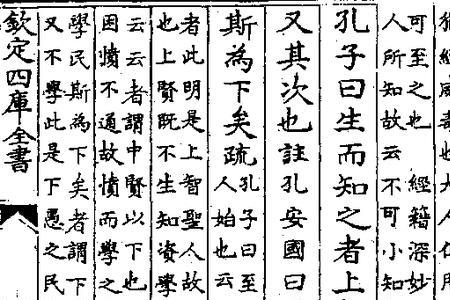 可至之也 經籍深妙
人所知故云不可小知
孔子曰生而知之者上
又其次也註孔安國曰
斯為下矣疏孔子曰至
人始也云
者此明是上智聖人故
也上賢既不生知資學
云云者謂中賢以下也
困憤不通故憤而學之
學民斯為下矣者謂下
又不學此是下愚之民
欽定四庫全書